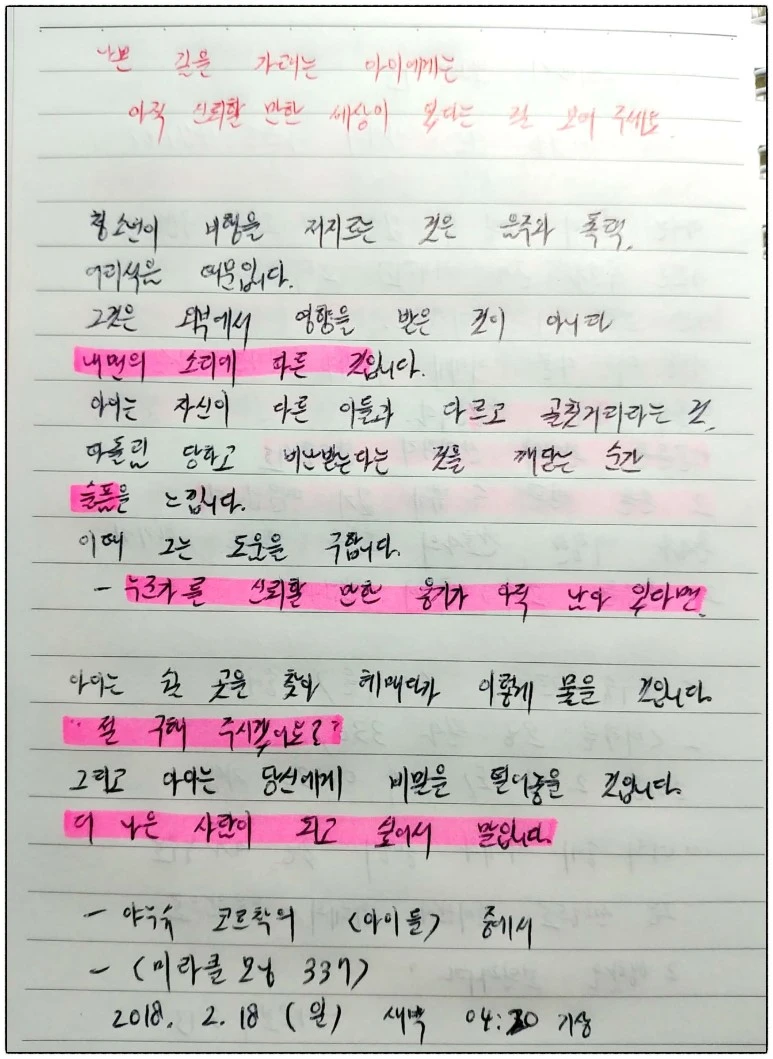 나쁜 길을 가려는 아이에게는
아직 신뢰할 만한 세상이 있다는 걸 보여 주세요.
청소년이 비행을 저지르는 것은 음주와 폭력,
어리석음 때문입니다.
그것은 외부에서 영향을 받은 것이 아니라
내면의 소리에 따른 것입니다.
아이는 자신이 다른 이들과 다르고 골칫거리라는 것,
따돌림 당하고 비난받는다는 것을 깨닫는 순간
슬픔을 느낍니다.
이때 그는 도움을 구합니다.
- 누군가를 신뢰할 만한 용기가 아직 남아 있다면.
아이는 쉴 곳을 찾아 헤매다가 이렇게 물을 것입니다.
"절 구해 주시겠어요?"
그리고 아이는 당신에게 비밀을 털어놓을 것입니다.
더 나은 사람이 되고 싶어서 말입니다.
- 야누슈 코르착의 <아이들> 중에서
- (미라클 모닝 337)
2018. 2. 18 (월) 새벽 04:30 기상